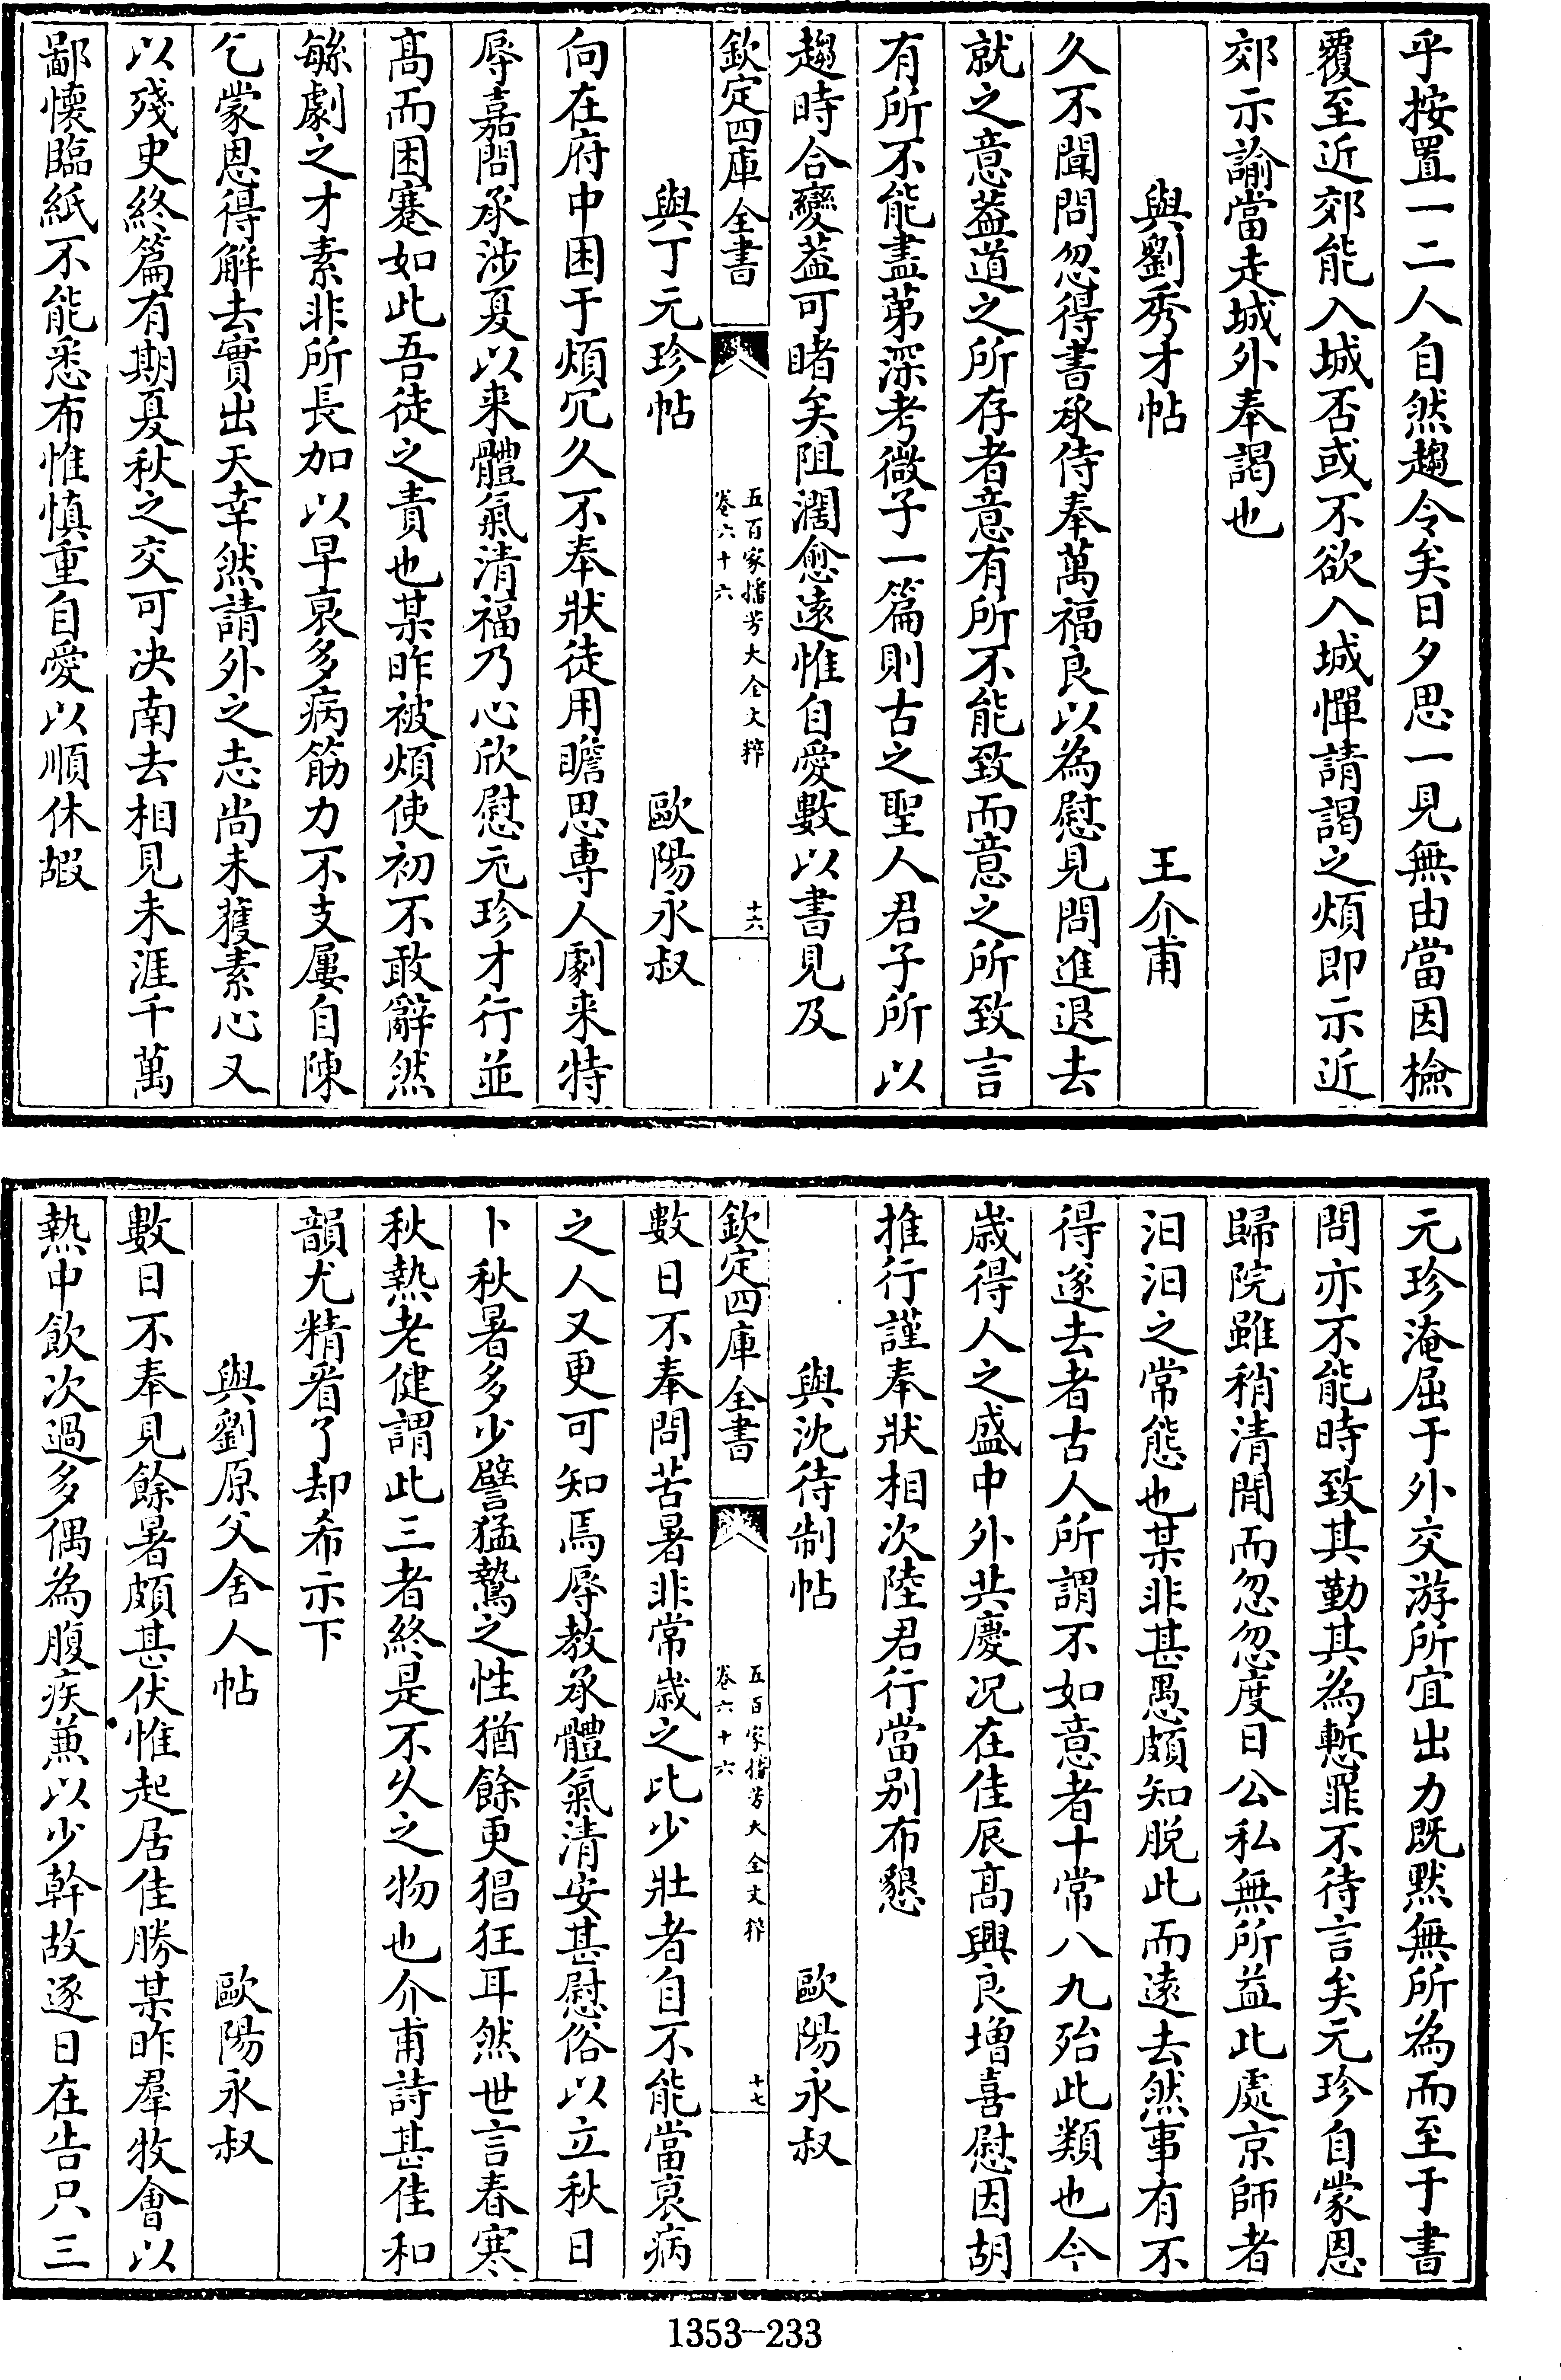 乎按置一二人自然趨令矣日夕思一見無由當因檢
覆至近郊能入城否或不欲入城憚請謁之煩即示近
郊示諭當走城外奉謁也
與劉秀才帖 王介甫
久不聞問忽得書承侍奉萬福良以為慰見問進退去
就之意葢道之所存者意有所不能致而意之所致言
有所不能盡苐深考微子一篇則古之聖人君子所以
趨時合變葢可睹矣阻濶愈遠惟自愛數以書見及
欽定四庫全書
五百家播芳大全文粹
卷六十六
十六
與丁元珍帖 歐陽永叔
向在府中困于煩冗久不奉狀徒用瞻思專人劇来特
辱嘉問承涉夏以来體氣清福乃心欣慰元珍才行並
髙而困蹇如此吾徒之責也某昨被煩使初不敢辭然
繇劇之才素非所長加以早衰多病筋力不支屢自陳
乞蒙恩得解去實出天幸然請外之志尚未獲素心又
以殘史終篇有期夏秋之交可决南去相見未涯千萬
鄙懐臨紙不能悉布惟慎重自愛以順休嘏
元珍淹屈于外交游所宜出力既黙無所為而至于書
問亦不能時致其勤其為慙罪不待言矣元珍自蒙恩
歸院雖稍清閒而忽忽度日公私無所益此處京師者
汩汩之常態也某非甚愚頗知脱此而逺去然事有不
得遂去者古人所謂不如意者十常八九殆此類也今
歳得人之盛中外共慶况在佳辰髙興良増喜慰因胡
推行謹奉狀相次陸君行當别布懇
與沈待制帖 歐陽永叔
欽定四庫全書
五百家播芳大全文粹
卷六十六
十七
數日不奉問苦暑非常歳之比少壯者自不能當衰病
之人又更可知焉辱教承體氣清安甚慰俗以立秋日
卜秋暑多少譬猛鷙之性猶餘更猖狂耳然世言春寒
秋熱老健謂此三者終是不久之物也介甫詩甚佳和
韻尤精看了却希示下
與劉原父舍人帖 歐陽永叔
數日不奉見餘暑頗甚伏惟起居佳勝某昨羣牧會以
熱中飲次過多偶為腹疾兼以少幹故逐日在告只三
1353-233